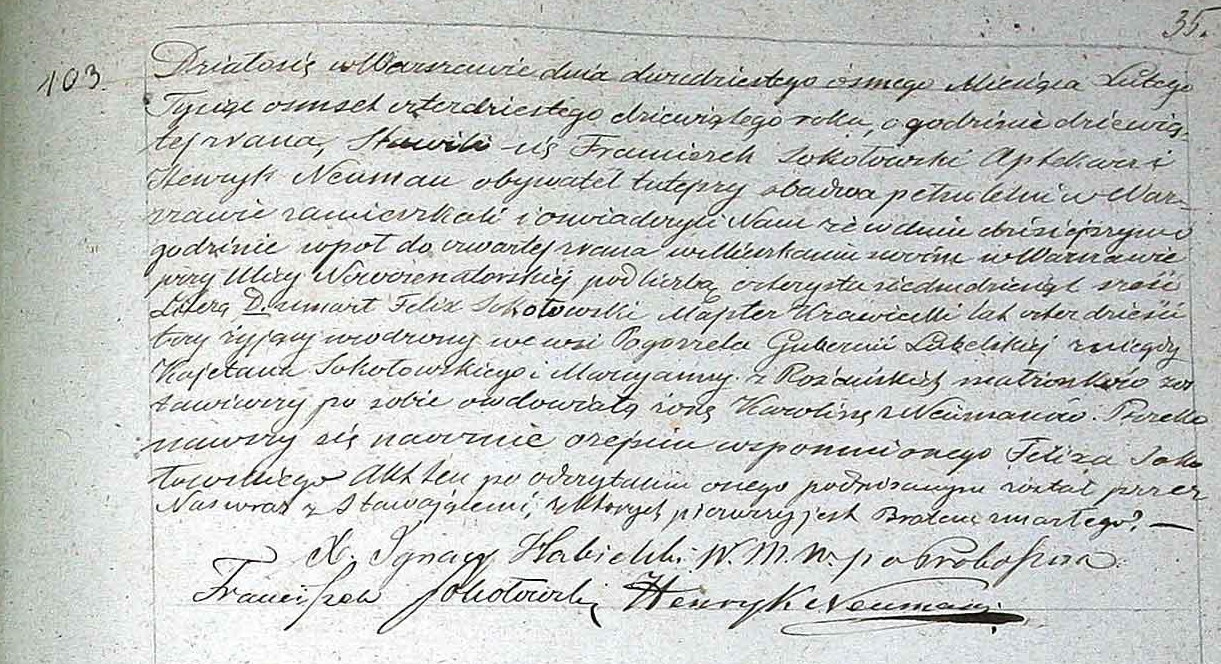 35.
103.
Działo się w Warszawie dnia dwudziestego ósmego Miesiąca Lutego
Tysiąc osmset czterdziestego dziewiątego roku, o godzinie dziewią-
tej zrana, Stawili się Franciszek Sokołowski Aptekarz i
Henryk Neuman obywatel tutejszy obadwa pełnoletni w War-
szawie zamieszkali i oswiadczyli Nam że w dniu dzisiejszym o
godzinie wpół do czwartej zrana w Mieszkaniu swoim w Warszawie
przy Ulicy Nowosenatorskiej pod liczbą czterysta siedmdziesiąt sześć
Literą D. umarł Felix Sokołowski Majster Krawiecki lat czterdzieści
trzy żyjący urodzony we wsi Pogorzela Gubernii Lubelskiej z niegdy
Kajetana Sokołowskiego i Maryanny z małżonków zos
tawiwszy po sobie owdowiałą żonę Karolinę z Neumanów. Przeko
nawszy się naocznie o zejsciu wspomnionego Felixa Soko
łowskiego Akt ten po odczytaniu onego podpisanym został przez
Nas wraz z Stawającemi, z których pierwszy jest Bratem zmarłego? —
X. Ignacy W. M. N. p o Proboszcza
Franciszek Sokołowski Henryk Neuman